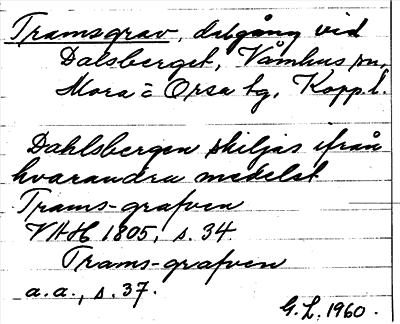 Tramsgrav, dalgång vid
Dalsberget, Våmhus sn,
Mora o Orsa tg, Kopp.l.
Dahlsbergen skiljas ifrån
hvarandra medelst
Trams-grafven
VAH 1805, s. 34.
Trams-grafven
a.a., s. 37.
G.L. 1960.